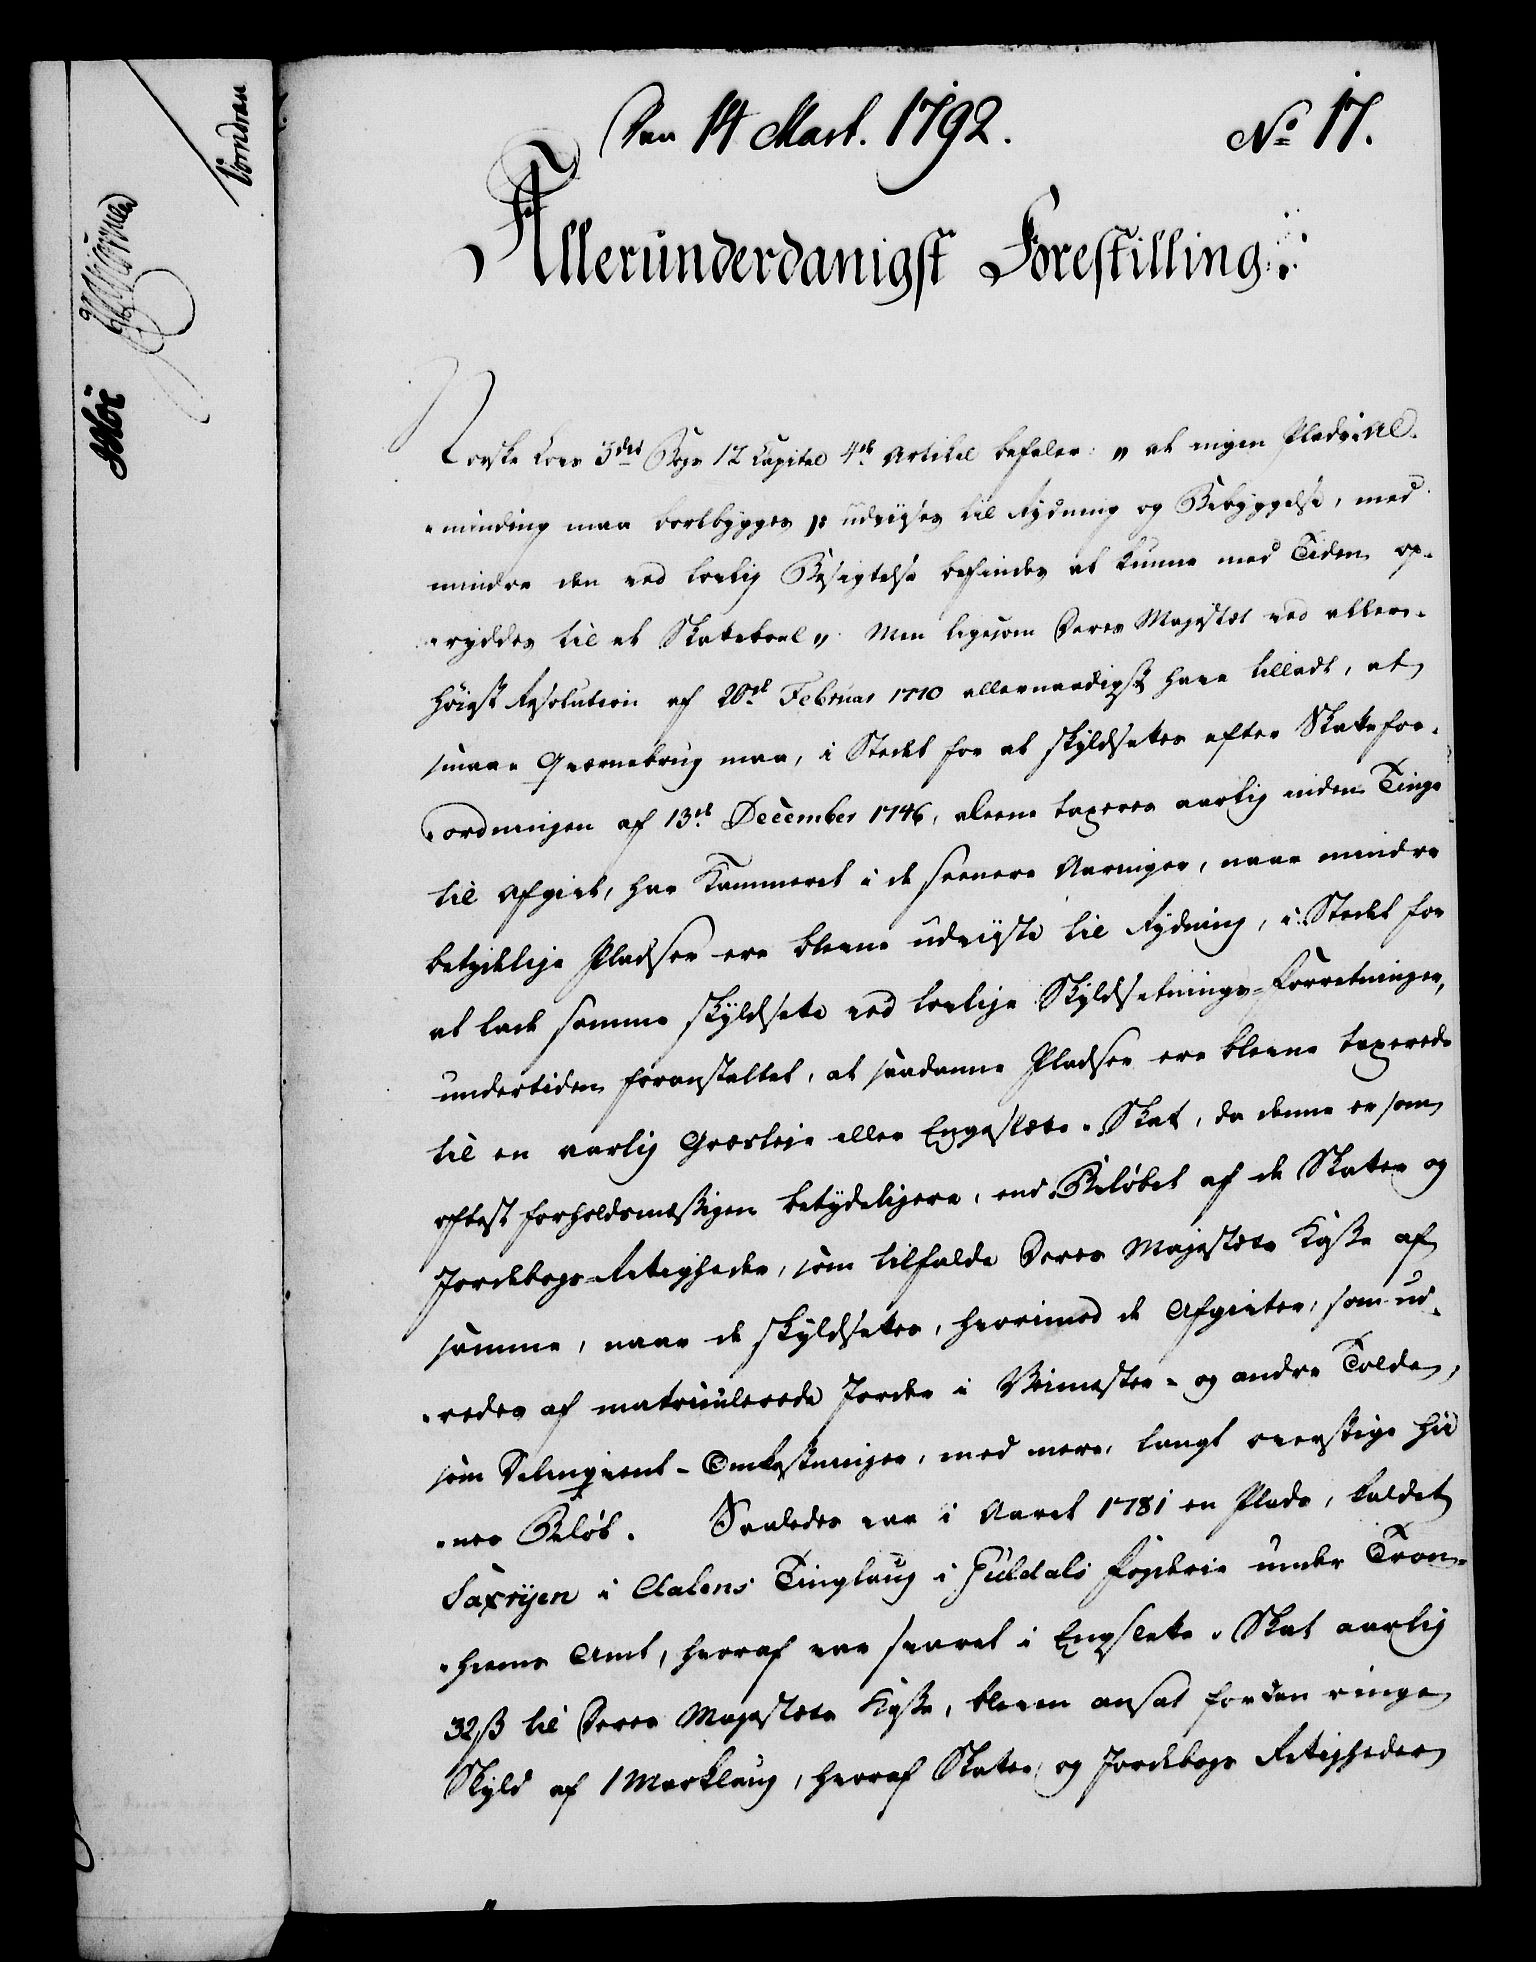 Den 14 Mart. 1792.
No 17.
Allerunderdanigst Forestilling.
Norske Lovs 3die Bogs 12 Capitel 4de Artikel befaler: "at ingen Plads i Al-
-minding maa bortbygges p: udvises til Rydning og Bebyggelse, med
mindre den ved lovlig Besigtelse befindes at kunne med Tiden op-
-ryddes til et Skatteboel". Men ligesom Deres Majestæt ved aller-
høiest Resolution af 20de Februar 1770 allernaadigst have tilladt, at
smaae Qværnebrug maa, i Stedet for at skyldsættes efter Skatte for-
-ordningen af 13de December 1746, alene taxeres aarlig inden Tinge
til Afgivt, har Kammeret i de seenere Aaringer, naar mindre
betydelige Pladser ere blevne udviiste til Rydning, i Stedet for
at lade samme skyldsætte ved lovlige Skyldsætnings-Forretninger,
undertiden foranstaltet, at saadanne Pladser ere blevne taxerede
til en aarlig Græsleje eller Engeslætte-Skat, da denne er som
oftest forholdsmæssigen betydeligere, end Beløbet af de Skatter og
Jordebogs-Rettigheder, som tilfalde Deres Majestæts Kasse af
samme, naar de skyldsættes, hvorimod de Afgivter, som ud-
-redes af matriculerede Jorder i Veimester- og andre Tolde,
som Delinqvent-Omkostninger, med mere, langt overstige hii-
-nes Beløb. Saaledes var i Aaret 1781 en Plads, kaldet
Saxvijen i Aalens Tinglaug i Guldals Fogderie under Tron-
-hiems Amt, hvoraf var svaret i Engslette-Skat aarlig
32 ß til Deres Majestæts Kasse, bleven ansat for den ringe
Skyld af 1 Marklaug, hvoraf Skatter og Jordebogs Rettigheder
Vorndran